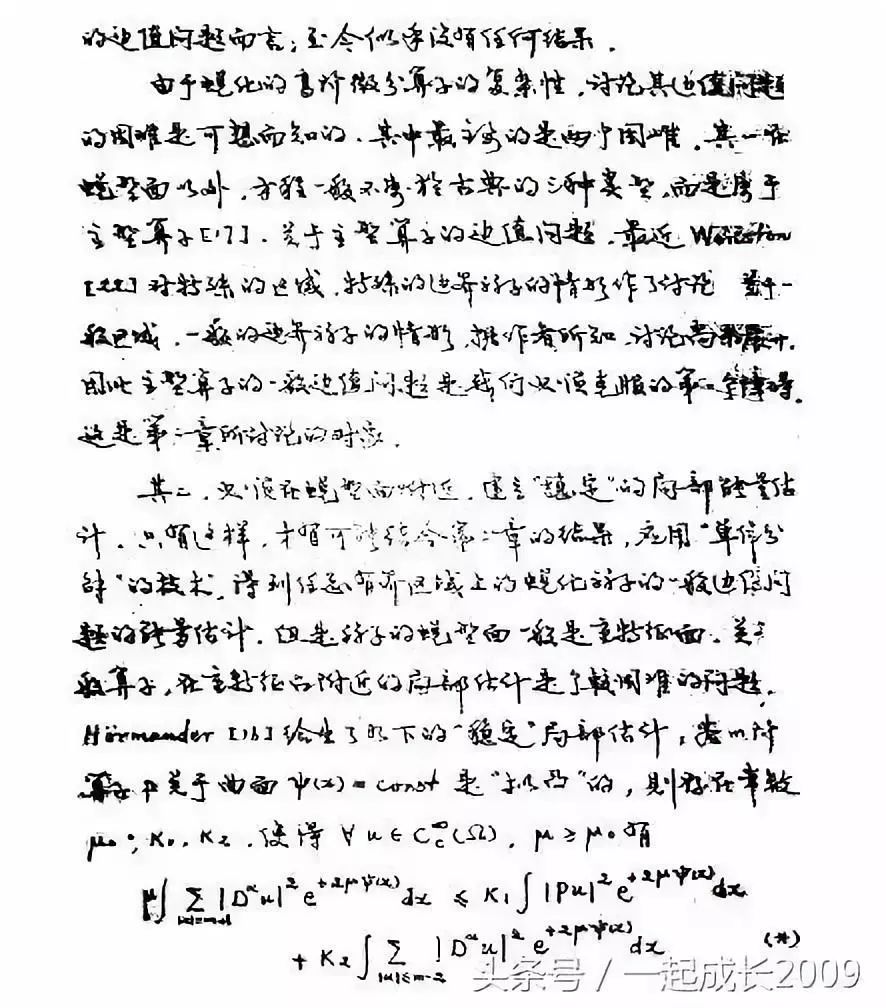 的边值问题而言,至今似乎没有任何结果.
由于蜕化的高阶微分算子的复杂性,讨论其边值问题
的困难是可想而知的.其中最主要的是两个困难.其一在
蜕型面以外,方程一般不属於古典的三种类型,而是属于
主型算子[17].关于主型算子的边值问题,最近
[22]对特殊的区域,特殊的边界算子的情形作了讨论 对于一
般区域,一般的边界算子的情形,据作者所知,讨论尚未展开.
因此主型算子的一般边值问题是我们必须克服的第一个障碍.
这是第一章所讨论的对象.
其二,必须在蜕型面附近,建立"稳定"的局部能量估
计.只有这样,才有可能结合第一章的结果,应用"单位分
解"的技术,得到任意有界区域上的蜕化算子的一般边值问
题的能量估计.但是算子的蜕型面一般是重特征面.关于一
般算子,在重特征点附近的局部估计是个较困难的问题.
Hörmander [16]给出了如下的"稳定"局部估计:若m阶
算子P关于曲面 ψ(x)=const 是"拟凸"的,则存在常数
μ₀,K₁,K₂,使得 ∀ u ∈ C_c^∞(Ω), μ ≥ μ₀ 有
μ∫ Σ_{|α|=m-1} |D^α u|² e^{+2μψ(x)} dx ≤ K₁ ∫ |Pu|² e^{+2μψ(x)} dx
+ K₂ ∫ Σ_{|α|≤m-2} |D^α u|² e^{+2μψ(x)} dx (*)
头条号 / 一起成长2009